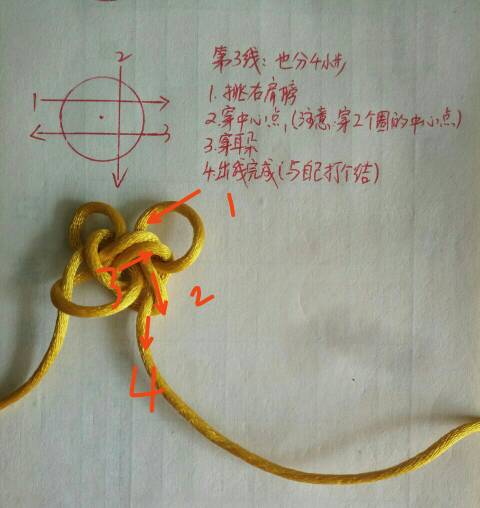 2
1
3
第3线：也分4小步
1.挑右肩膀
2.穿中心点，(注意:穿2个圈的中心点.)
3.穿耳朵
4.出线完成(与自己打个结)
1
3
2
4